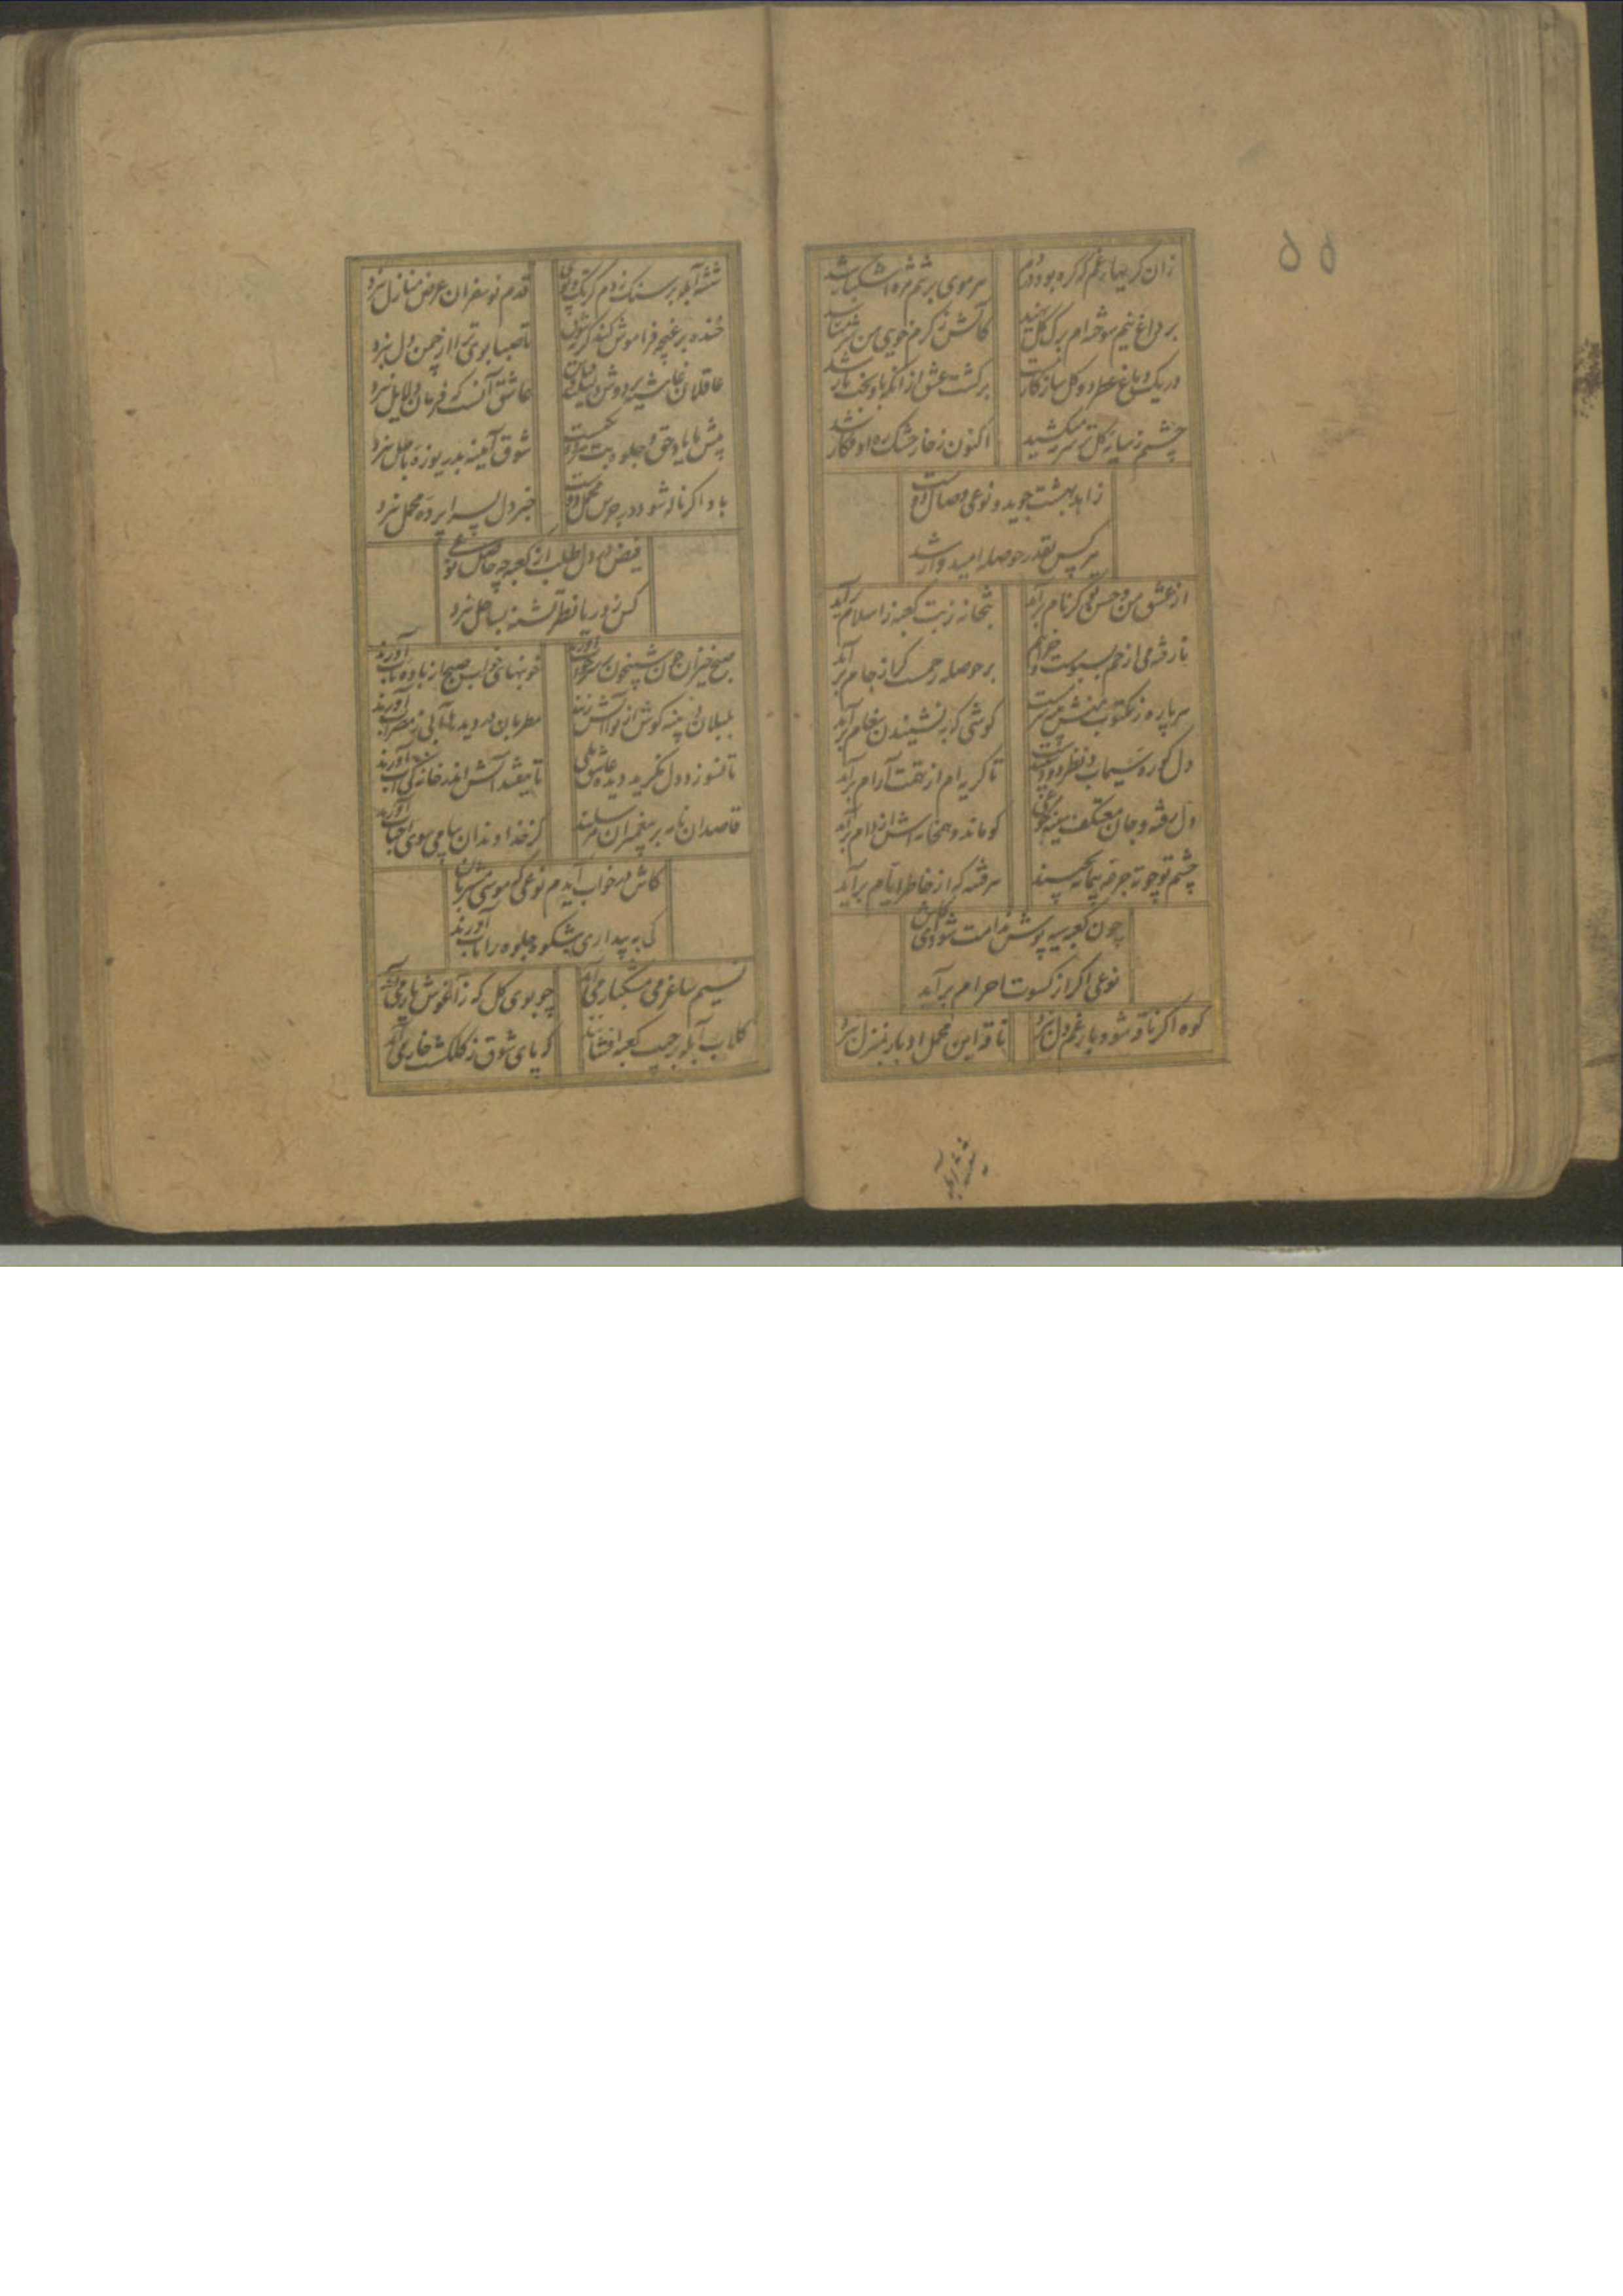 ۵۵
زان گریها ز غم که گره بود در دلم سر موی بر تنم مژه اشکبار شد
بر داغ نیم سوخته ام برگ گل نهید کاتش ز گرم خویی من شرمسار شد
در یک دماغ عطر دو گل سازگار نیست برگشت عشق از انکه باو بخت یار شد
چشمم ز سایه گل تر سر نمیکشید اکنون ز خار خشک ره او فکار شد
زاهد بهشت جوید و نوعی وصال دوست
هر کس بقدر حوصله امیدوار شد
از عشق من و حسن تو گر نام برآید بتخانه ز بت کعبه ز اسلام برآید
نارفته می از خم بسبو مست و خرابم بر حوصله رحمست کز جام برآید
هر پاره ز مکتوب منش مرهم گوشی که بنشنیدن پیغام برآید
دل کوره سیماب و نظر تا گریه ام از تهمت آرام برآید
دل رفته و جان معتکف سینه کو ماند و همخانه اش از دام برآید
چشم تو چو ته جرعه پیمانه بچیند هر فتنه که از خاطر ایام برآید
چون کعبه سیه پوش ندامت شود
نوعی اگر از کسوت احرام برآید
کوه اگر ناقه شود بار غم دل نبرد ناقه این محمل ادبار بمنزل نبرد
شیشه آبله بر سنگ زدم قدم نوسفران عرض منازل نبرد
خنده بر غنچه فراموش کند گر تا صبا بوی ترا از چمن دل نبرد
عاقلان غاشیه بر دوش عاشق آنست که فرمان دلایل نبرد
پیش ما یاد حق و جلوه بت شوق آیینه بدریوزه باطل نبرد
باد اگر ناله شود در جرس محمل دوست خبر دل بسراپرده محمل نبرد
فیض در دل طلب از کعبه چه حاصل نوعی
کس ز دریا نظر تشنه بساحل نبرد
صبح خیزان چمن شبیخون بر سر خواب آورند خونبهای خواب صبح از باده ناب آورند
بلبلان پنبه گوش از نوا آتش زنند مطربان در دیدها آبی ز مضراب آورند
تا نسوزد دل نگرید دیده عاشق بلی تا نیفتد آتش اندر خانه کی آب آورند
قاصدان نامه بر پیغمبران مرسلند کز خداوندان پیامی سوی احباب آورند
کاش در خواب آیدم نوعی که موسی مشربان
کی به بیداری شکوه جلوه را تاب آورند
نسیم ساغر می مشکبار می آید چو بوی گل که ز آغوش یار می آید
گلاب آبله بر جیب کعبه افشاند که پای شوق ز گلگشت خار می آید
شیشه آبله